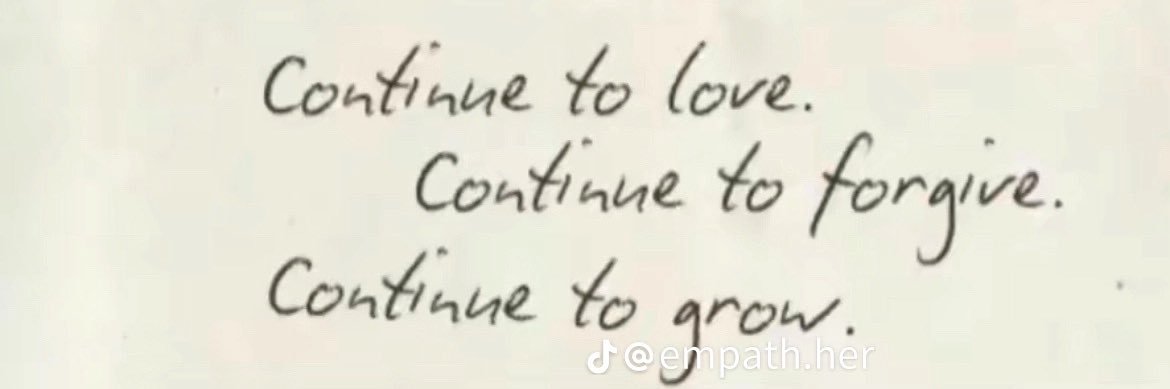 Continue to love.
Continue to forgive.
Continue to grow.
@empath.her